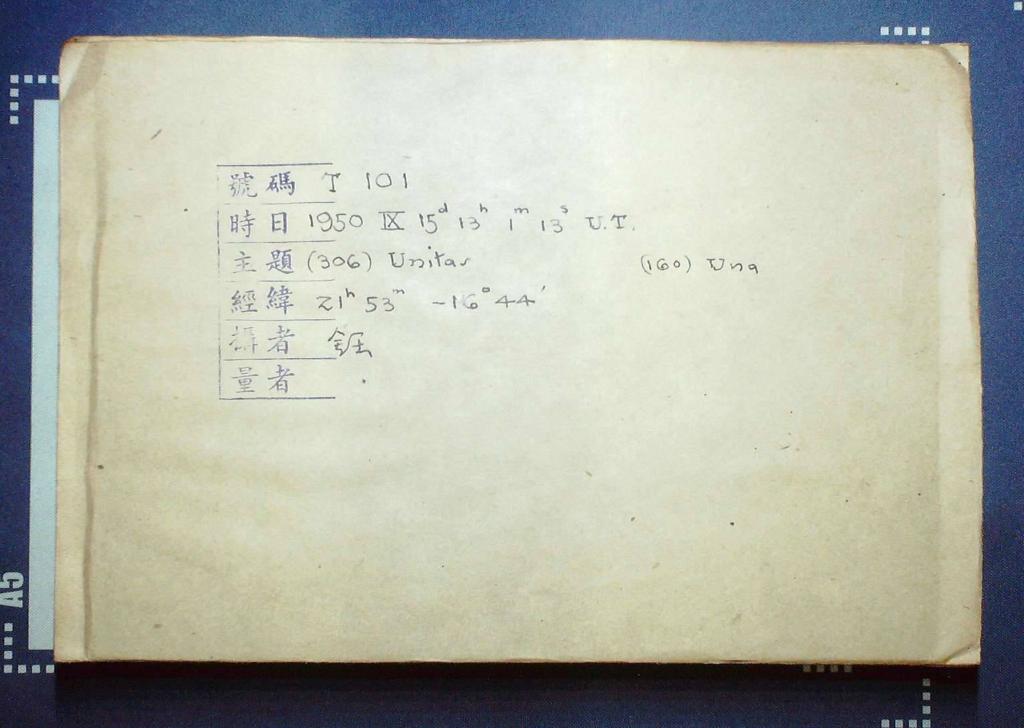 號碼 T 101
時日 1950 IX 15d 13h 1m 13s U.T.
主題 (306) Unitas (160) Una
經緯 21h 53m -16°44'
攝者
量者
A5